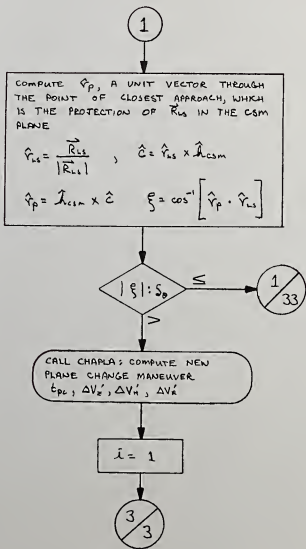 1
COMPUTE r̂p, A UNIT VECTOR THROUGH
THE POINT OF CLOSEST APPROACH, WHICH
IS THE PROJECTION OF R⃗LS IN THE CSM
PLANE
r̂LS = R⃗LS / |R⃗LS| , ĉ = r̂LS × ĥCSM
r̂p = ĥCSM × ĉ ξ = cos⁻¹ [ r̂p · r̂LS ]
|ξ| : Sθ
≤
1/33
>
CALL CHAPLA: COMPUTE NEW
PLANE CHANGE MANEUVER
tPC, ΔVZ', ΔVH', ΔVR'
i = 1
3/3